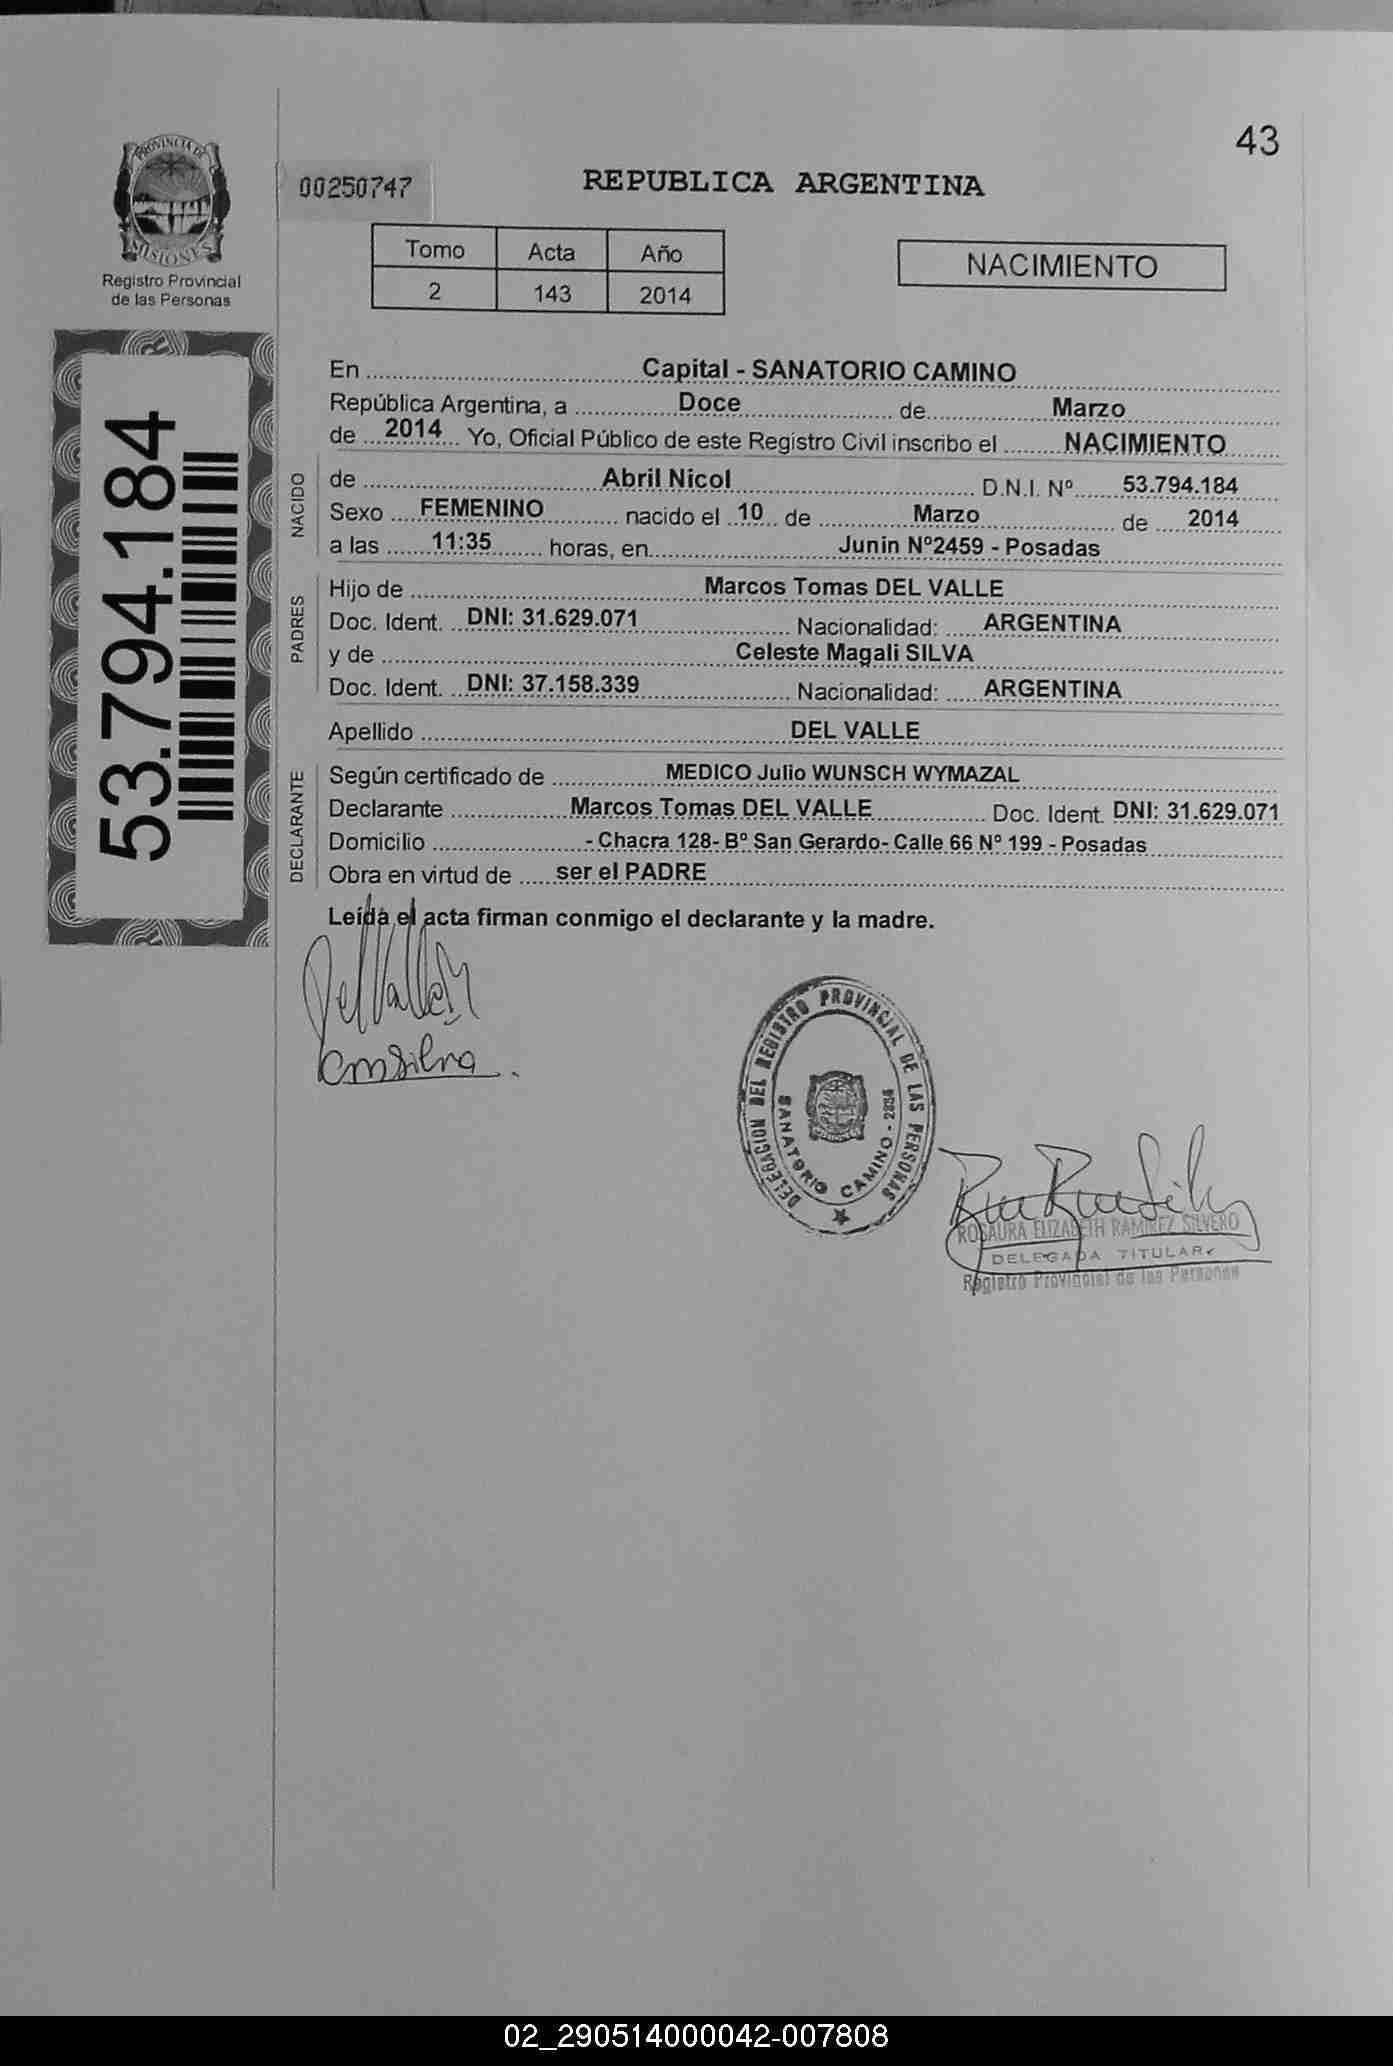 43
PROVINCIA DE
MISIONES
Registro Provincial
de las Personas
00250747
REPUBLICA ARGENTINA
Tomo Acta Año
2 143 2014
NACIMIENTO
53.794.184
En Capital - SANATORIO CAMINO
República Argentina, a Doce de Marzo
de 2014 Yo, Oficial Público de este Registro Civil inscribo el NACIMIENTO
NACIDO
de Abril Nicol D.N.I. Nº 53.794.184
Sexo FEMENINO nacido el 10 de Marzo de 2014
a las 11:35 horas, en Junin Nº2459 - Posadas
PADRES
Hijo de Marcos Tomas DEL VALLE
Doc. Ident. DNI: 31.629.071 Nacionalidad: ARGENTINA
y de Celeste Magali SILVA
Doc. Ident. DNI: 37.158.339 Nacionalidad: ARGENTINA
Apellido DEL VALLE
DECLARANTE
Según certificado de MEDICO Julio WUNSCH WYMAZAL
Declarante Marcos Tomas DEL VALLE Doc. Ident. DNI: 31.629.071
Domicilio - Chacra 128- Bº San Gerardo- Calle 66 Nº 199 - Posadas
Obra en virtud de ser el PADRE
Leída el acta firman conmigo el declarante y la madre.
Del Valle M
CmSilva
DELEGACION DEL REGISTRO PROVINCIAL DE LAS PERSONAS
SANATORIO CAMINO -
ROSAURA ELIZABETH RAMIREZ SILVERO
DELEGADA TITULAR
Registro Provincial de las Personas
02_290514000042-007808